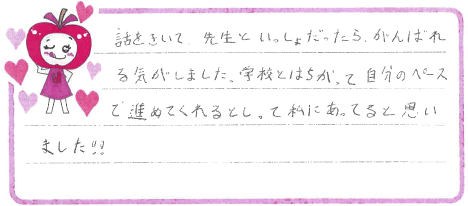 話をきいて、先生といっしょだったら、がんばれ
る気がしました、学校とはちがって自分のペース
で進めてくれるとしって私にあってると思い
ました!!